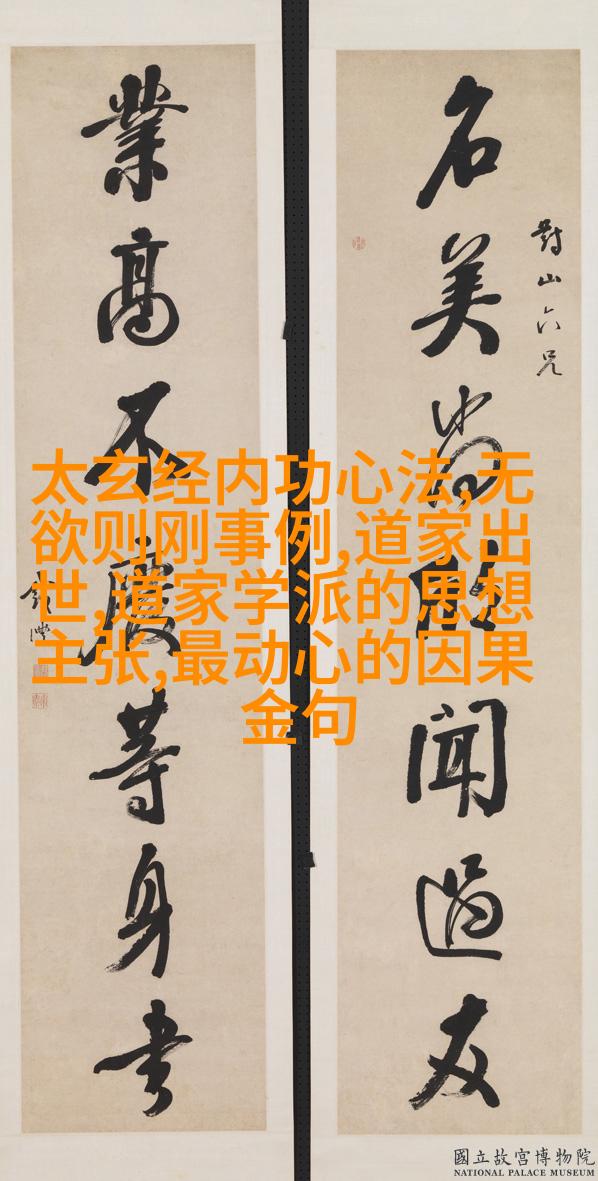 對山六兄
名美尚聞過友
業高不廢等身書
錢灃
太玄经内功心法,无
欲则刚事例,道家出
世,道家学派的思想
主张,最动心的因果
金句
國立故宮博物院
NATIONAL PALACE MUSEUM